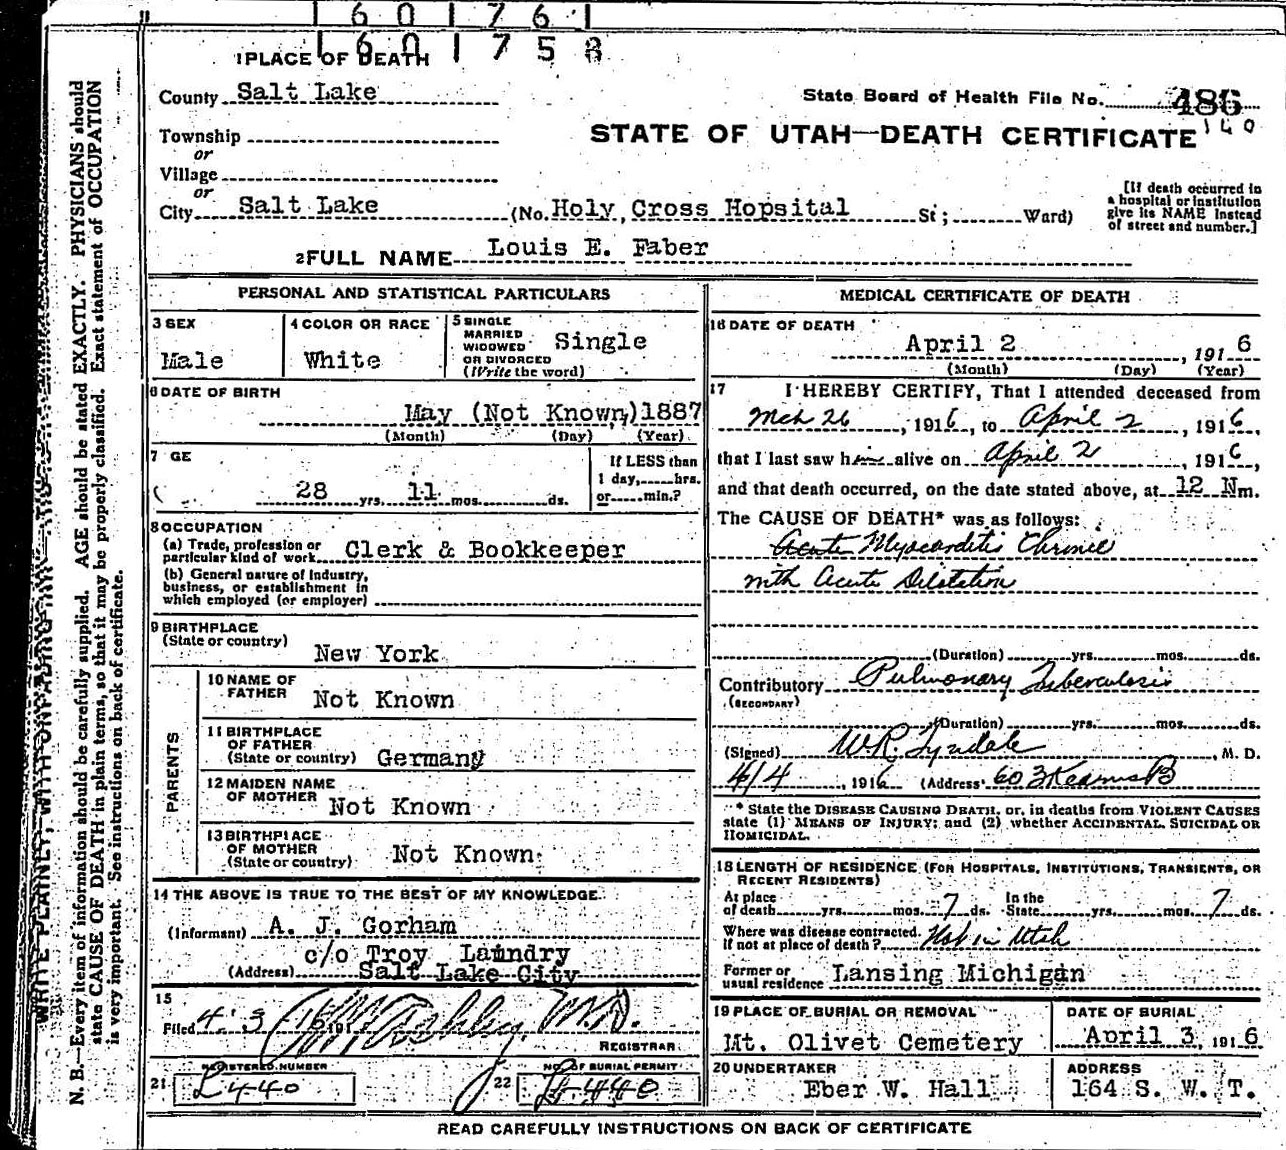 1 6 0 1 7 6 1
1 6 0 1 7 5 8
1 PLACE OF DEATH
County Salt Lake
State Board of Health File No. 486
Township
140
STATE OF UTAH—DEATH CERTIFICATE
or
Village
or
City Salt Lake (No. Holy Cross Hopsital St; Ward)
[If death occurred in
a hospital or institution
give its NAME instead
of street and number.]
2 FULL NAME Louis E. Faber
PERSONAL AND STATISTICAL PARTICULARS
3 SEX
Male
4 COLOR OR RACE
White
5 SINGLE
MARRIED
WIDOWED
OR DIVORCED
(Write the word)
Single
6 DATE OF BIRTH
May (Not Known) 1887
(Month) (Day) (Year)
7 GE
28 yrs. 11 mos. ds.
If LESS than
1 day, hrs.
or min.?
8 OCCUPATION
(a) Trade, profession or
particular kind of work Clerk & Bookkeeper
(b) General nature of industry,
business, or establishment in
which employed (or employer)
9 BIRTHPLACE
(State or country)
New York
PARENTS
10 NAME OF
FATHER Not Known
11 BIRTHPLACE
OF FATHER
(State or country) Germany
12 MAIDEN NAME
OF MOTHER Not Known
13 BIRTHPLACE
OF MOTHER
(State or country) Not Known
14 THE ABOVE IS TRUE TO THE BEST OF MY KNOWLEDGE
(Informant) A. J. Gorham
c/o Troy Laundry
(Address) Salt Lake City
15
Filed 4-3 1916 M.D.
REGISTRAR
REGISTERED NUMBER
21 L440
NO. OF BURIAL PERMIT
22 L440
MEDICAL CERTIFICATE OF DEATH
16 DATE OF DEATH
April 2, 1916
(Month) (Day) (Year)
17 I HEREBY CERTIFY, That I attended deceased from
Mch 26, 1916, to April 2, 1916,
that I last saw him alive on April 2, 1916,
and that death occurred, on the date stated above, at 12 Nm.
The CAUSE OF DEATH* was as follows:
Acute Myocarditis Chronic
with Acute Dilatation
(Duration) yrs. mos. ds.
Contributory Pulmonary Tuberculosis
(SECONDARY)
(Duration) yrs. mos. ds.
(Signed) W.R. Tyndale, M. D.
4/4, 1916 (Address) 603 Kearns B
* State the DISEASE CAUSING DEATH, or, in deaths from VIOLENT CAUSES
state (1) MEANS OF INJURY; and (2) whether ACCIDENTAL, SUICIDAL OR
HOMICIDAL.
18 LENGTH OF RESIDENCE (FOR HOSPITALS, INSTITUTIONS, TRANSIENTS, OR
RECENT RESIDENTS)
At place
of death yrs. mos. 7 ds.
In the
State yrs. mos. 7 ds.
Where was disease contracted.
If not at place of death? Not in Utah
Former or
usual residence Lansing Michigan
19 PLACE OF BURIAL OR REMOVAL
Mt. Olivet Cemetery
DATE OF BURIAL
April 3, 1916
20 UNDERTAKER
Eber W. Hall
ADDRESS
164 S. W. T.
READ CAREFULLY INSTRUCTIONS ON BACK OF CERTIFICATE
WRITE PLAINLY, WITH UNFADING INK
N. B.—Every item of information should be carefully supplied. AGE should be stated EXACTLY. PHYSICIANS should
state CAUSE OF DEATH in plain terms, so that it may be properly classified. Exact statement of OCCUPATION
is very important. See instructions on back of certificate.